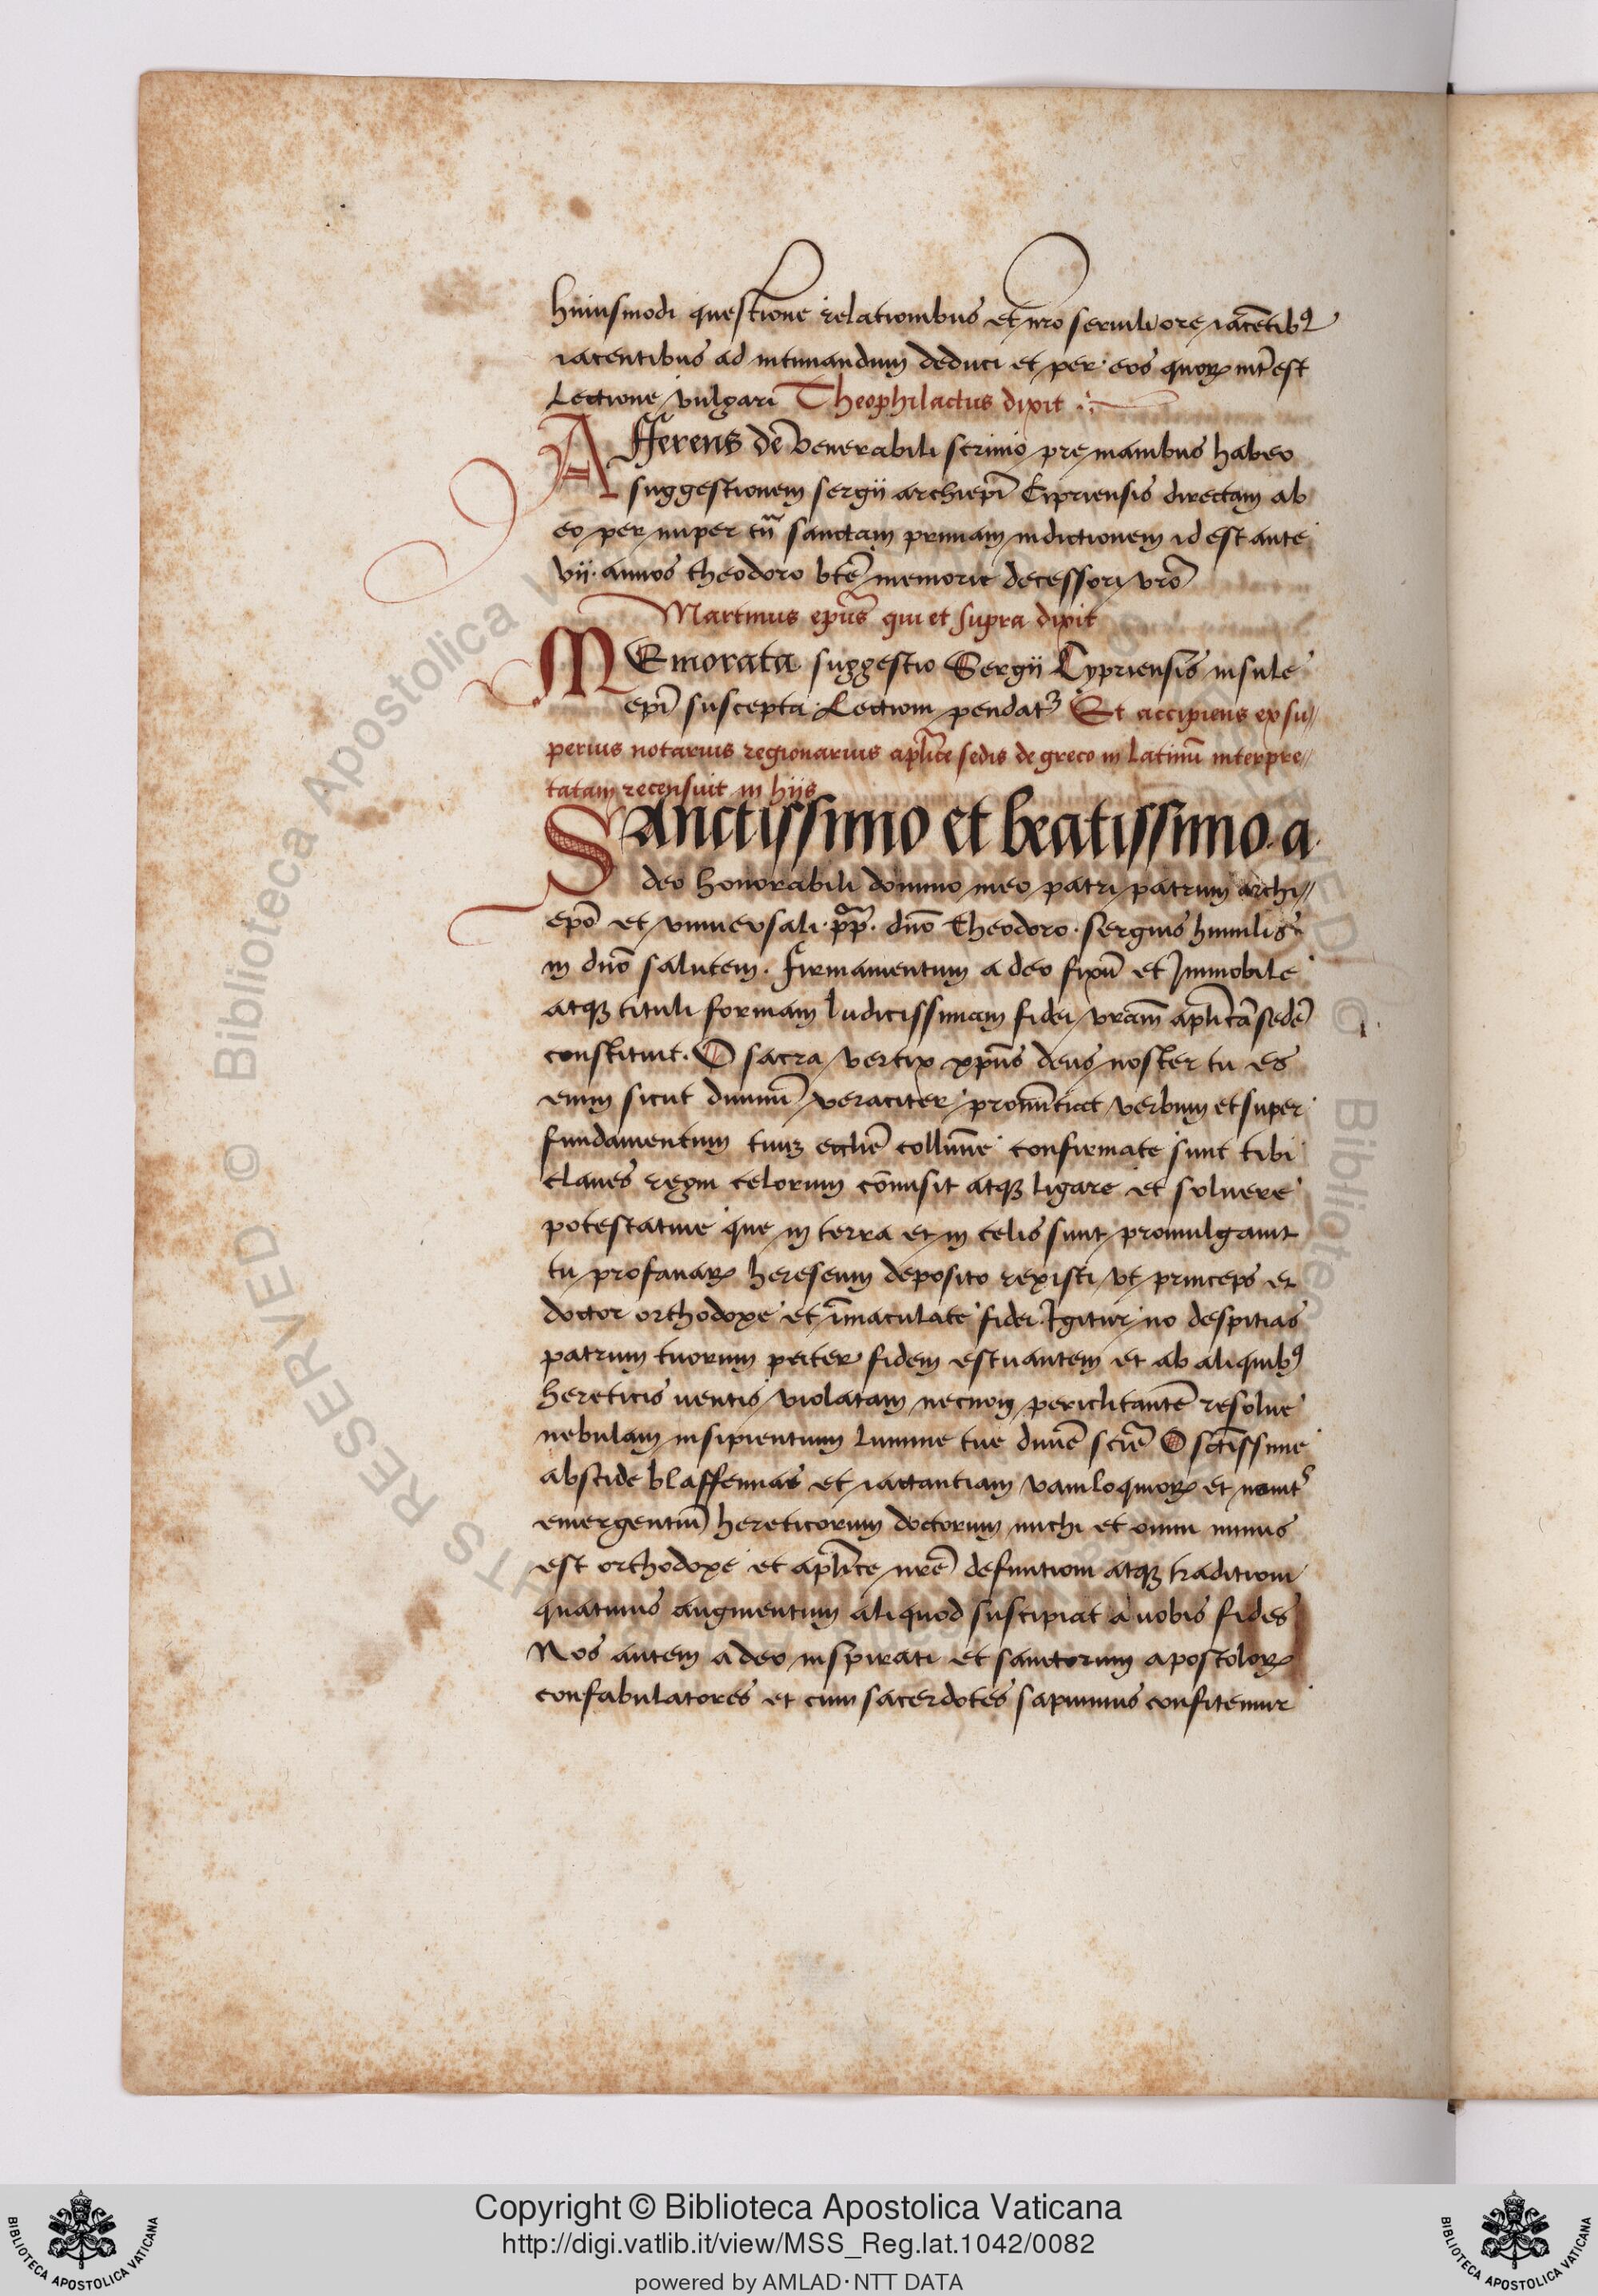 huiusmodi questione relationibus et nr̄o seruili ore iacētibꝰ
iacentibus ad intimandum deduci et per eos quoꝝ int̄est
Lectione vulgari Theophilactus dixit
Afferens de venerabili scrinio pre manibus habeo
suggestionem sergii archiepī Cipriensis directam ab
eo per nuper sanctam primam indictionem id est ante
vii. annos theodoro btē memorie decessori vr̄o
Martinus ep̄us qui et supra dixit
MEmorata suggestio Sergii Cypriensis insule
epī suscepta Lectioni pendatr Et accipiens exsu//
perius notarius regionarius ap̄lice sedis de greco in latinū interpre//
tatam recensuit in hiis
SAnctissimo et beatissimo a
deo honorabili domino meo patri patrum archi//
epō et vniuersali pp̄. dn̄o Theodoro. sergius humilis
in dn̄o salutem. firmamentum a deo fixū et Immobile
atqꝫ tituli formam ludicissimam fidei vram̄ ap̄licā sedē
constituit. O sacra vertix xp̄us deus noster tu es
enim sicut diuinū veraciter pronūtiat verbum et super
fundamentum tuuꝫ ecclīe collūne confirmate sunt tibi
claues regni celorum cōmisit atqꝫ ligare et soluere
potestatiue que in terra et in celis sunt promulgauit
tu profanaꝝ heresum deposito rexisti vt princeps et
doctor orthodoxe et īmaculate fidei. Igitur no despitias
patrum tuorum peiter fidem estuantem et ab aliquibꝰ
hereticis uentis violatam necnon periclitantē resolue
nebulam insipientium lumine tue diuīe sciē O sctīssime
abscide blaffemias et iactantiam vaniloquioꝝ et nouit
emergentiū hereticorum doctorum michi et omni minus
est orthodoxe et ap̄lice nrē definitioni atqꝫ traditioni
quatinus augmentum aliquod suscipiat a nobis fides
Nos autem a deo inspirati et sanctorum apostoloꝝ
confabulatores et cum sacerdotes sapiumus confitemur
Copyright © Biblioteca Apostolica Vaticana
http://digi.vatlib.it/view/MSS_Reg.lat.1042/0082
powered by AMLAD·NTT DATA